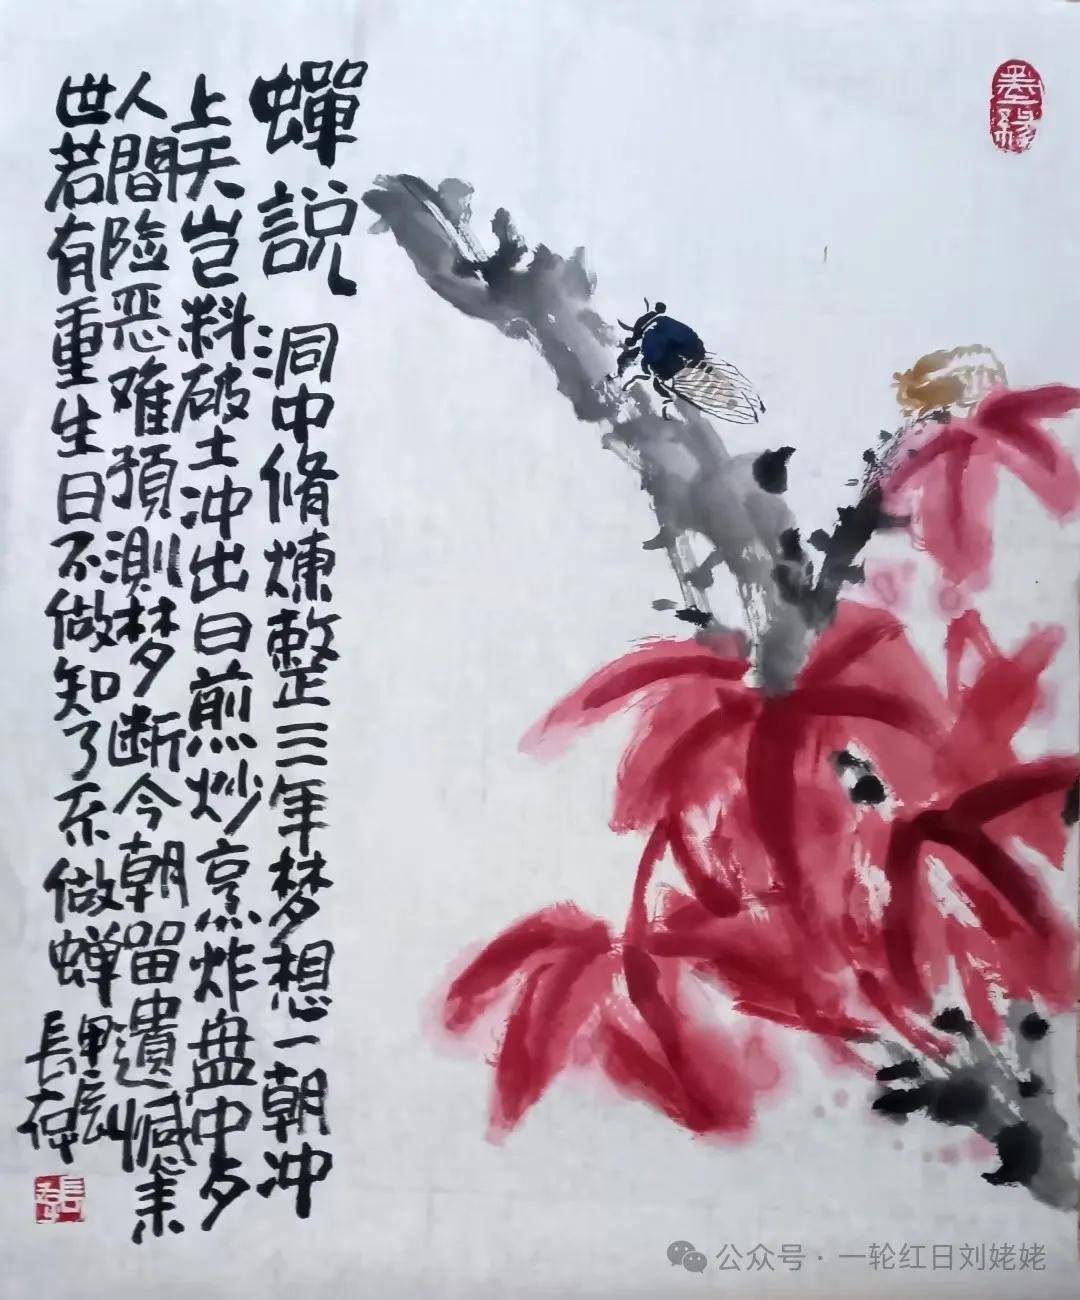 墨緣
蟬說
洞中脩煉整三年梦想一朝冲
上天岂料破土冲出日煎炒烹炸盘中夕
人間险恶难預测梦断今朝留遺憾来
世若有重生日不做知了不做蝉
甲辰
公众号·一轮红日刘姥姥